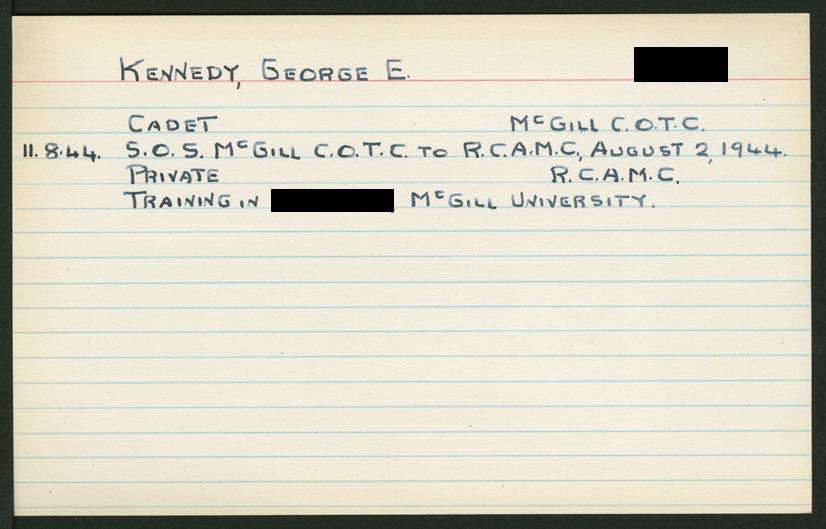 KENNEDY, GEORGE E.
CADET McGILL C.O.T.C.
11.8.44. S.O.S. McGILL C.O.T.C. TO R.C.A.M.C., AUGUST 2, 1944.
PRIVATE R.C.A.M.C.
TRAINING IN McGILL UNIVERSITY.